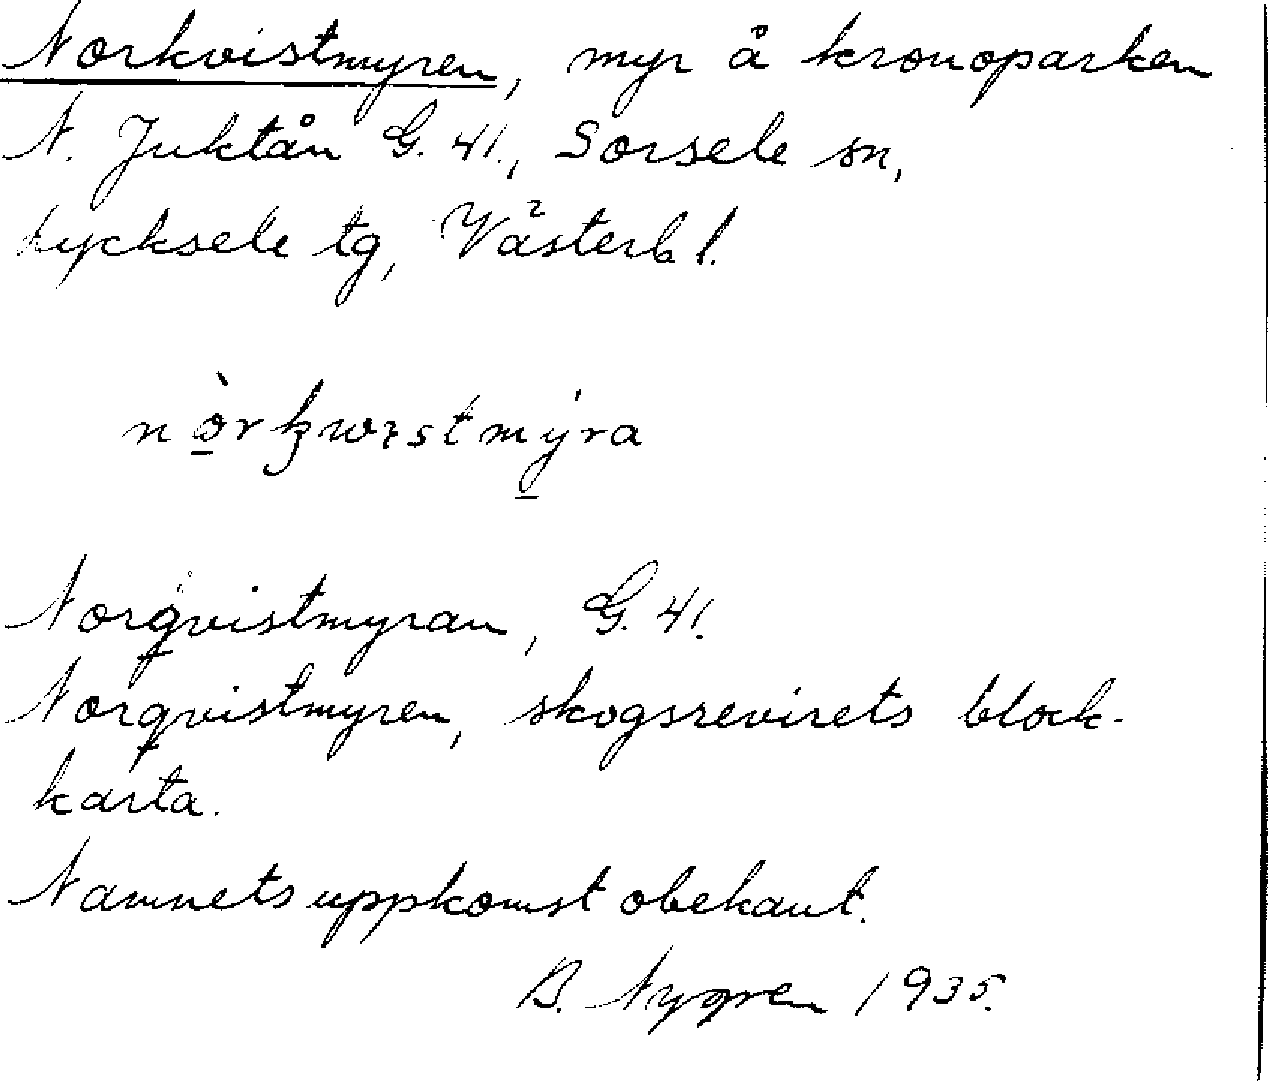 Norkvistmyren, myr å kronoparken
N. Juktån G. 41., Sorsele sn,
Lycksele tg, Västerb l.
Norqvistmyran, G. 41.
Norqvistmyren, skogsrevirets block-
karta.
Namnets uppkomst obekant.
B. Nygren 1935.